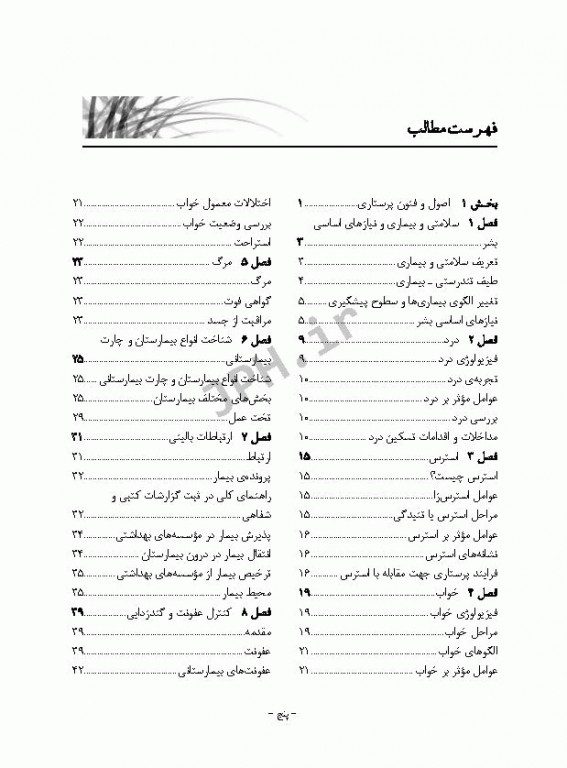 فهرست مطالب
بخش ۱ اصول و فنون پرستاری ۱
فصل ۱ سلامتی و بیماری و نیازهای اساسی
بشر ۳
تعریف سلامتی و بیماری ۳
طیف تندرستی ـ بیماری ۴
تغییر الگوی بیماری‌ها و سطوح پیشگیری ۵
نیازهای اساسی بشر ۵
فصل ۲ درد ۹
فیزیولوژی درد ۹
تجربه‌ی درد ۱۰
عوامل مؤثر بر درد ۱۰
بررسی درد ۱۰
مداخلات و اقدامات تسکین درد ۱۰
فصل ۳ استرس ۱۵
استرس چیست؟ ۱۵
عوامل استرس‌زا ۱۵
مراحل استرس یا تنیدگی ۱۵
عوامل مؤثر بر استرس ۱۶
نشانه‌های استرس ۱۶
فرایند پرستاری جهت مقابله با استرس ۱۶
فصل ۴ خواب ۱۹
فیزیولوژی خواب ۱۹
مراحل خواب ۱۹
الگوهای خواب ۲۱
عوامل مؤثر بر خواب ۲۱
اختلالات معمول خواب ۲۱
بررسی وضعیت خواب ۲۲
استراحت ۲۲
فصل ۵ مرگ ۲۳
مرگ ۲۳
گواهی فوت ۲۳
مراقبت از جسد ۲۳
فصل ۶ شناخت انواع بیمارستان و چارت
بیمارستانی ۲۵
شناخت انواع بیمارستان و چارت بیمارستانی ۲۵
بخش‌های مختلف بیمارستان ۲۵
تخت عمل ۲۹
فصل ۷ ارتباطات بالینی ۳۱
ارتباط ۳۱
پرونده‌ی بیمار ۳۲
راهنمای کلی در ثبت گزارشات کتبی و
شفاهی ۳۲
پذیرش بیمار در مؤسسه‌های بهداشتی ۳۴
انتقال بیمار در درون بیمارستان ۳۴
ترخیص بیمار از مؤسسه‌های بهداشتی ۳۵
محیط بیمار ۳۵
فصل ۸ کنترل عفونت و گندزدایی ۳۹
مقدمه ۳۹
عفونت ۳۹
عفونت‌های بیمارستانی ۴۲
JPH.ir
- پنج -